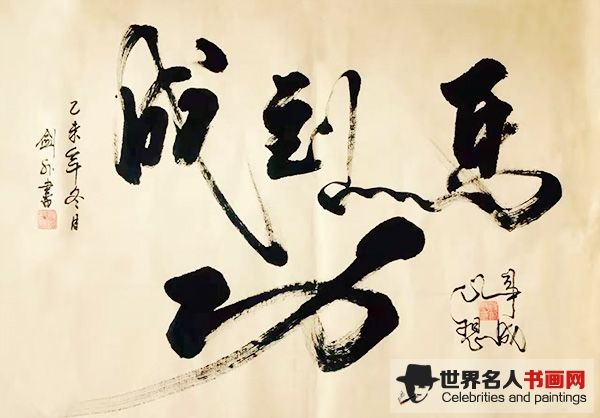 马到成功
心想
事成
乙未年冬月
剑 書
世界名人书画网
Celebrities and paintings